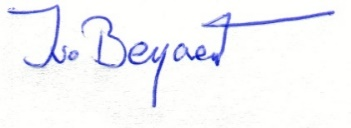 Ivo Beyaert